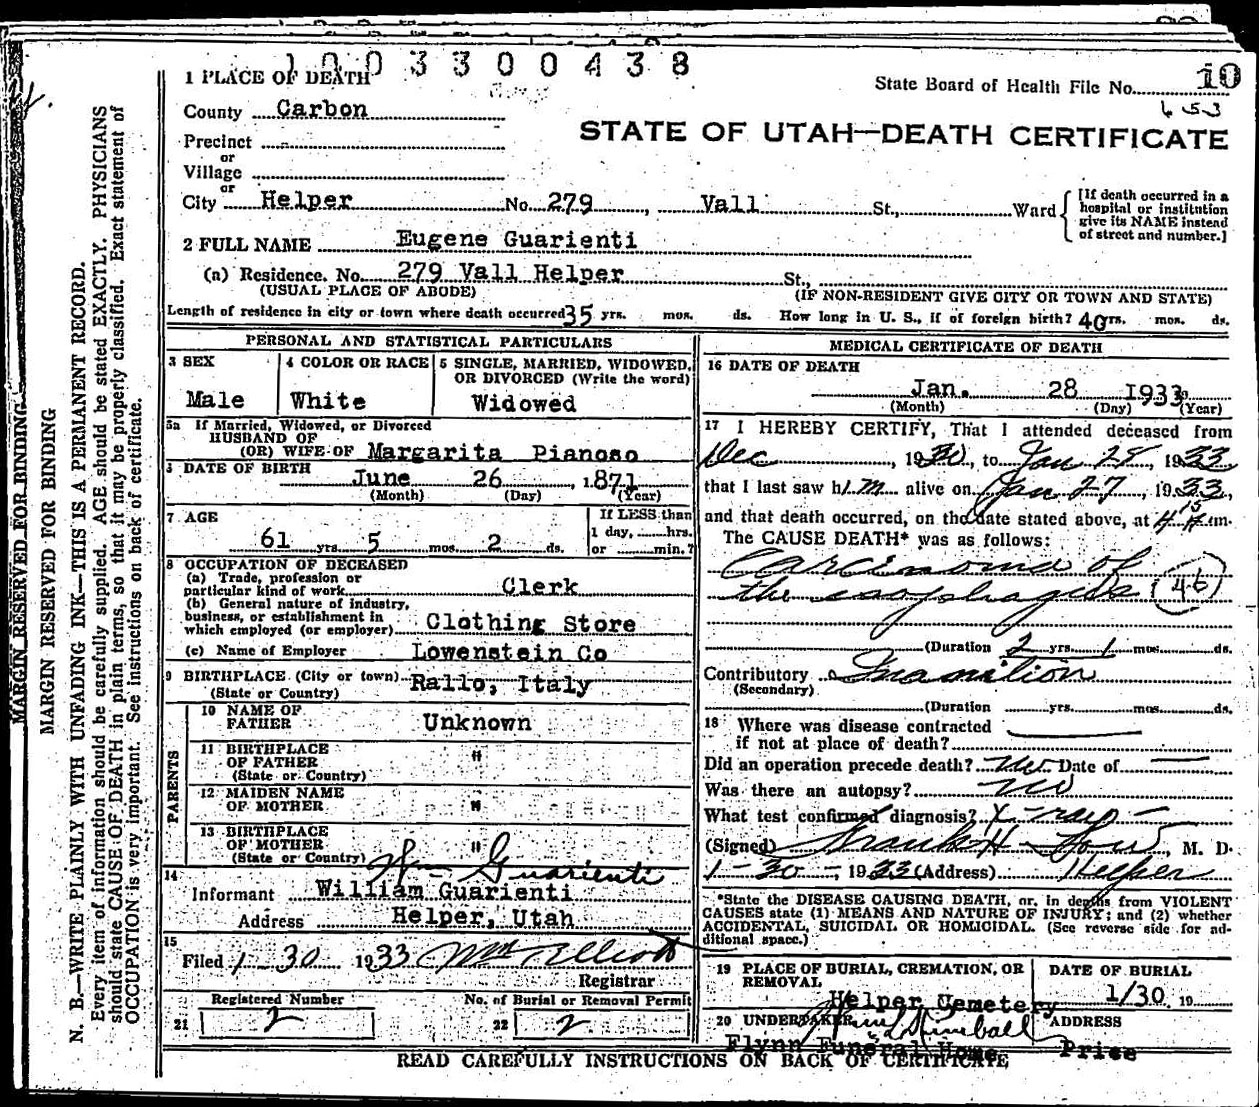 1003300438
1 PLACE OF DEATH
State Board of Health File No. 10
653
County Carbon
STATE OF UTAH—DEATH CERTIFICATE
Precinct
or
Village
or
City Helper No. 279, Vall St., Ward
[If death occurred in a hospital or institution give its NAME instead of street and number.]
2 FULL NAME Eugene Guarienti
(a) Residence. No. 279 Vall Helper St.,
(USUAL PLACE OF ABODE) (IF NON-RESIDENT GIVE CITY OR TOWN AND STATE)
Length of residence in city or town where death occurred 35 yrs. mos. ds. How long in U. S., if of foreign birth? 40 yrs. mos. ds.
PERSONAL AND STATISTICAL PARTICULARS
3 SEX
Male
4 COLOR OR RACE
White
5 SINGLE, MARRIED, WIDOWED,
OR DIVORCED (Write the word)
Widowed
5a If Married, Widowed, or Divorced
HUSBAND OF
(OR) WIFE OF Margarita Pianoso
DATE OF BIRTH
June 26, 1871
(Month) (Day) (Year)
7 AGE
61 yrs. 5 mos. 2 ds.
If LESS than
1 day, hrs.
or min.?
8 OCCUPATION OF DECEASED
(a) Trade, profession or
particular kind of work Clerk
(b) General nature of industry,
business, or establishment in
which employed (or employer) Clothing Store
(c) Name of Employer Lowenstein Co
9 BIRTHPLACE (City or town) Rallo, Italy
(State or Country)
PARENTS
10 NAME OF
FATHER Unknown
11 BIRTHPLACE
OF FATHER "
(State or Country)
12 MAIDEN NAME
OF MOTHER "
13 BIRTHPLACE
OF MOTHER "
(State or Country)
Wm Guarienti
14
Informant William Guarienti
Address Helper, Utah
15
Filed 1-30 1933 Wm Elliott
Registrar
Registered Number
21 2
No. of Burial or Removal Permit
22 2
MEDICAL CERTIFICATE OF DEATH
16 DATE OF DEATH
Jan. 28 1933
(Month) (Day) (Year)
17 I HEREBY CERTIFY, That I attended deceased from
Dec, 1930, to Jan 28, 1933
that I last saw him alive on Jan 27, 1933,
and that death occurred, on the date stated above, at 4 15 A.m.
The CAUSE DEATH* was as follows:
Carcinoma of
the esophagus (46)
(Duration 2 yrs. 1 mos. ds.
Contributory Inanition
(Secondary)
(Duration yrs. mos. ds.
18 Where was disease contracted
if not at place of death?
Did an operation precede death? No Date of
Was there an autopsy? No
What test confirmed diagnosis? X-ray
(Signed) Frank H Low, M. D.
1-30, 1933 (Address) Helper
*State the DISEASE CAUSING DEATH, or, in deaths from VIOLENT
CAUSES state (1) MEANS AND NATURE OF INJURY; and (2) whether
ACCIDENTAL, SUICIDAL OR HOMICIDAL. (See reverse side for ad-
ditional space.)
19 PLACE OF BURIAL, CREMATION, OR
REMOVAL
Helper Cemetery
DATE OF BURIAL
1/30 19
20 UNDERTAKER
Flynn Funeral Home
ADDRESS
Price
READ CAREFULLY INSTRUCTIONS ON BACK OF CERTIFICATE
MARGIN RESERVED FOR BINDING
MARGIN RESERVED FOR BINDING
N. B.—WRITE PLAINLY WITH UNFADING INK—THIS IS A PERMANENT RECORD.
Every item of information should be carefully supplied. AGE should be stated EXACTLY. PHYSICIANS
should state CAUSE OF DEATH in plain terms, so that it may be properly classified. Exact statement of
OCCUPATION is very important. See instructions on back of certificate.